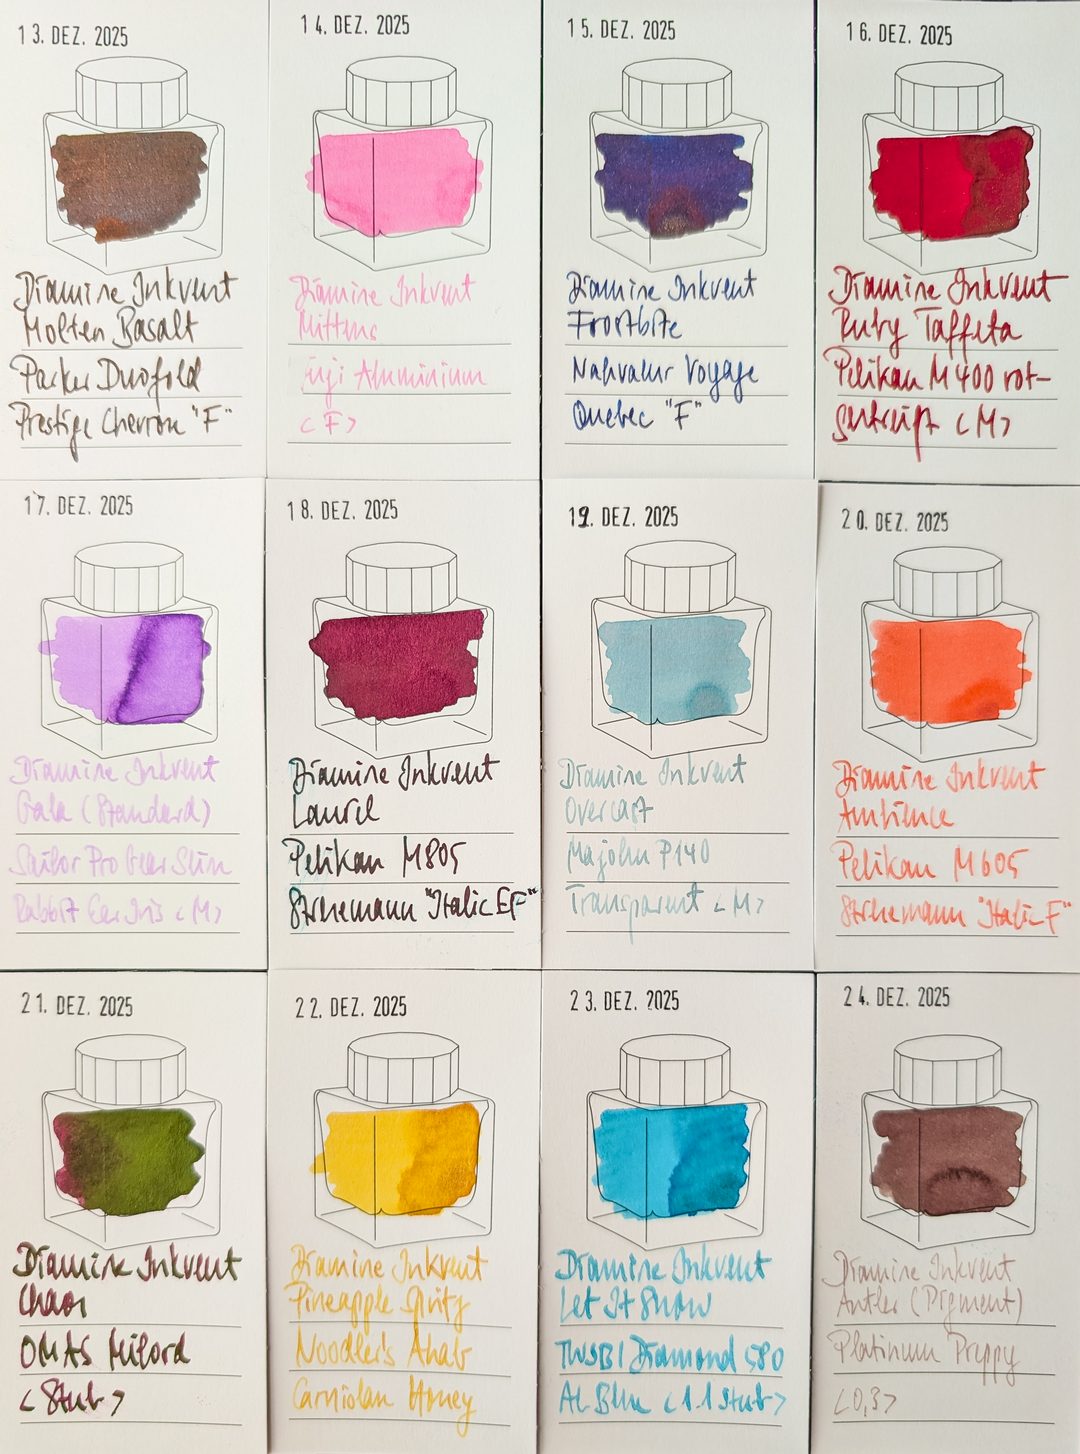 13. DEZ. 2025
Diamine Inkvent
Molten Basalt
Parker Duofold
Prestige Chevron "F"
14. DEZ. 2025
Diamine Inkvent
Mittens
Fuji Aluminium
<F>
15. DEZ. 2025
Diamine Inkvent
Frostbite
Nahvalur Voyage
Quebec "F"
16. DEZ. 2025
Diamine Inkvent
Ruby Taffeta
Pelikan M400 rot-
gestreift <M>
17. DEZ. 2025
Diamine Inkvent
Gala (Standard)
Sailor Pro Gear Slim
Rabbit Ear Iris <M>
18. DEZ. 2025
Diamine Inkvent
Laurel
Pelikan M805
Strehemann "Italic EF"
19. DEZ. 2025
Diamine Inkvent
Overcast
Majohn P140
Transparent <M>
20. DEZ. 2025
Diamine Inkvent
Ambience
Pelikan M605
Strehemann "Italic F"
21. DEZ. 2025
Diamine Inkvent
Chaos
OMAS Milord
<Stub>
22. DEZ. 2025
Diamine Inkvent
Pineapple Spritz
Noodler's Ahab
Carniolan Honey
23. DEZ. 2025
Diamine Inkvent
Let It Snow
TWSBI Diamond 580
AL Blue <1.1 Stub>
24. DEZ. 2025
Diamine Inkvent
Antler (Pigment)
Platinum Preppy
<0,3>